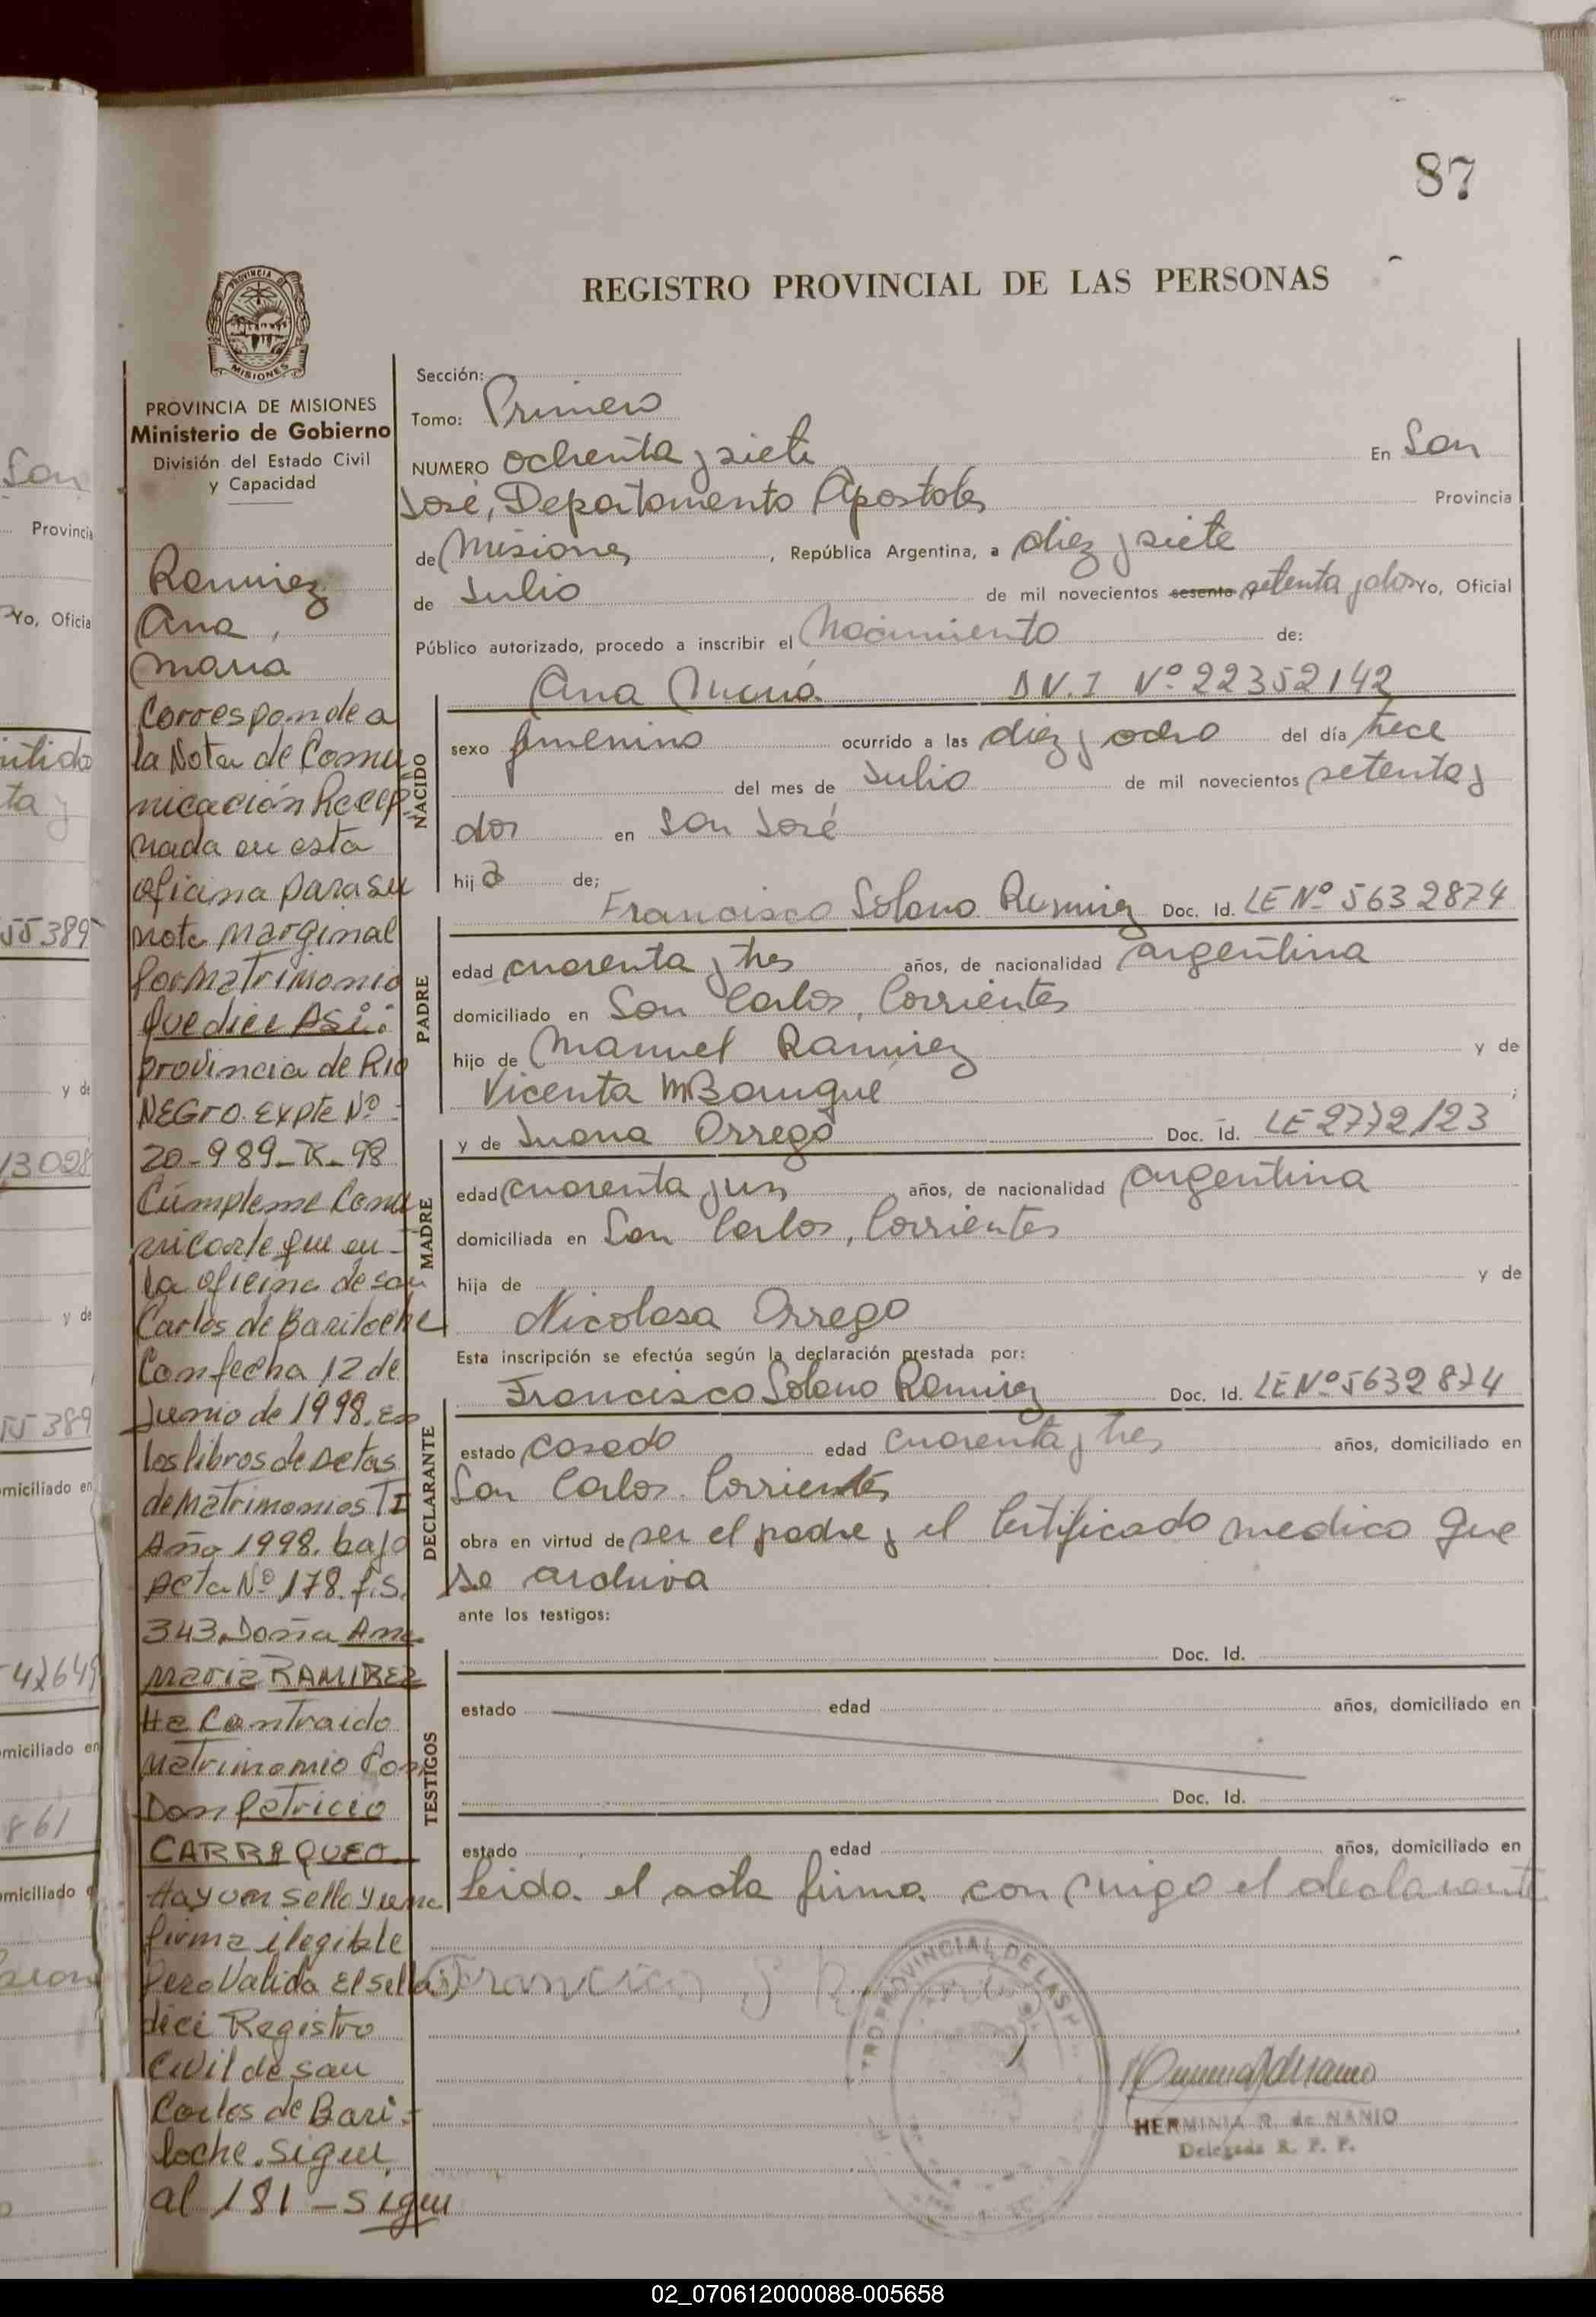 87
REGISTRO PROVINCIAL DE LAS PERSONAS
PROVINCIA
MISIONES
PROVINCIA DE MISIONES
Ministerio de Gobierno
División del Estado Civil
y Capacidad
Ramirez
Ana
Maria
Corresponde a
la Nota de Comu
nicación Recep
nada en esta
oficina para su
nota marginal
por Matrimonio
que dice Asi:
provincia de Rio
NEGro. Expte Nº -
20-989-R-98
Cúmpleme Comu
nicarle que en -
la oficina de san
Carlos de Bariloche
Con fecha 12 de
Junio de 1998. En
los libros de Actas
de Matrimonios TI
Año 1998. bajo
Acta Nº 178. f.S.
343. Doña Ana
Maria RAMIREZ
Ha Contraido
Matrimonio Con
Don Patricio
CARRIQUEO.
Hay un sello y una
firma ilegible
Pero Valida El sello
dice Registro
Civil de san
Carlos de Bari-
loche. Sigue
al 181 - Sigue
Sección:
Tomo: Primero
NUMERO ochenta y siete En San
José, Departamento Apostoles Provincia
de Misiones, República Argentina, a diez y siete
de Julio de mil novecientos sesenta y setenta y dos Yo, Oficial
Público autorizado, procedo a inscribir el Nacimiento de:
Ana Maria D.N.I Nº 22352142
NACIDO
sexo femenino ocurrido a las diez y ocho del día trece
del mes de Julio de mil novecientos setenta y
dos en San José
hija de;
Francisco Solano Ramirez Doc. Id. LE Nº 5632874
PADRE
edad cuarenta y tres años, de nacionalidad argentina
domiciliado en San Carlos, Corrientes
hijo de Manuel Ramirez y de
Vicenta MBarugue;
y de Juana Orrego Doc. Id. LE 2772123
MADRE
edad cuarenta y un años, de nacionalidad argentina
domiciliada en San Carlos, Corrientes
hija de y de
Nicolasa Orrego
Esta inscripción se efectúa según la declaración prestada por:
Francisco Solano Ramirez Doc. Id. LE Nº 5632874
DECLARANTE
estado casado edad cuarenta y tres años, domiciliado en
San Carlos. Corrientes
obra en virtud de ser el padre y el Certificado medico que
se archiva
ante los testigos:
TESTIGOS
Doc. Id.
estado edad años, domiciliado en
Doc. Id.
estado edad años, domiciliado en
Leida el acta firma con migo el declarante
Francisco S R
PROVINCIAL DE LAS
HERMINIA R. de NANIO
Delegada R. P. P.
San
Provincia
Yo, Oficia
ta y
55389
y de
13028
y de
55389
miciliado en
42649
miciliado en
861
miciliado
02_070612000088-005658